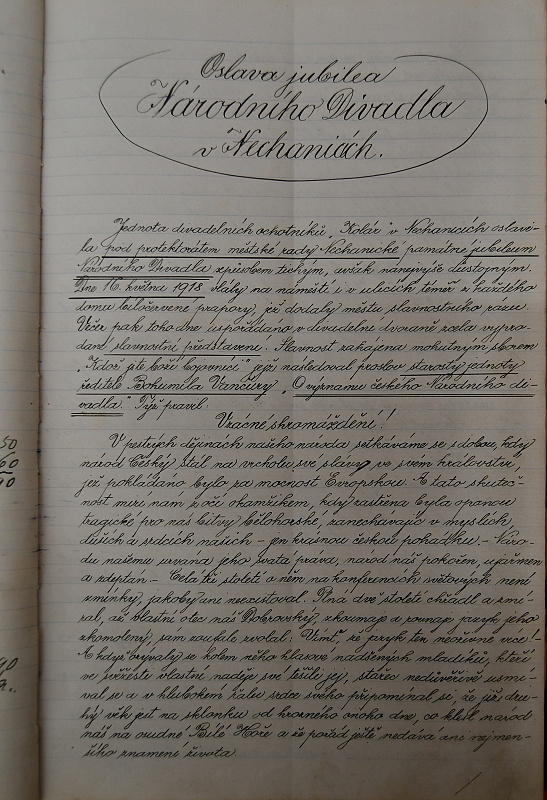 Oslava jubilea
Národního Divadla
v Nechanicích.
Jednota divadelních ochotníků „Kolár" v Nechanicích oslavi-
la pod protektorátem městské rady Nechanické památné jubileum
Národního Divadla způsobem tichým, avšak nanejvýše důstojným.
Dne 16. května 1918 vlály na náměstí i v ulicích téměř z každého
domu bíločervené prapory, jež dodaly městu slavnostního rázu.
Večer pak toho dne uspořádáno v divadelní dvoraně zcela vypro-
dané slavnostní představení. Slavnost zahájena mohutným sborem
„Kdož jste Boží bojovníci" jejž následoval proslov starosty jednoty
ředitele Bohumila Vančury „O významu českého Národního di-
vadla." Týž pravil:
Vzácné shromáždění!
V pestrých dějinách našeho národa setkáváme se s dobou, kdy
národ Český stál na vrcholu své slávy ve svém království,
jež pokládáno bylo za mocnost Evropskou. A tato skuteč-
nost mizí nám z očí okamžikem, kdy zastřena byla oponou
tragické pro nás bitvy bělohorské, zanechávajíc v myslích,
duších a srdcích našich – jen krásnou českou pohádku. – Náro-
du našemu urvána jeho svatá práva, národ náš pokořen, ujařmen
a zdeptán. – Celá tři století o něm na konferencích světových není
zmínky, jakoby ani neexistoval. Plná dvě století chřadl a zmí-
ral, až vlastní otec náš Dobrovský, zkoumaje a rovnaje jazyk jeho
zkomolený, sám zoufale zvolal: Věřte, že jazyk ten neožije více! –
A když ozývaly se kolem něho hlasové nadšených mladíků, kteří
ve vzkříšení vlasti naději své těšili jej, stařec nedůvěřivě usmí-
val se a v hlubokém žalu srdce svého připomínal si, že již dru-
hý věk jest na sklonku od hrozného onoho dne, co klesl národ
náš na osudné Bílé Hoře a že pořád ještě nedává ani nejmen-
šího znamení života.
50
60
90